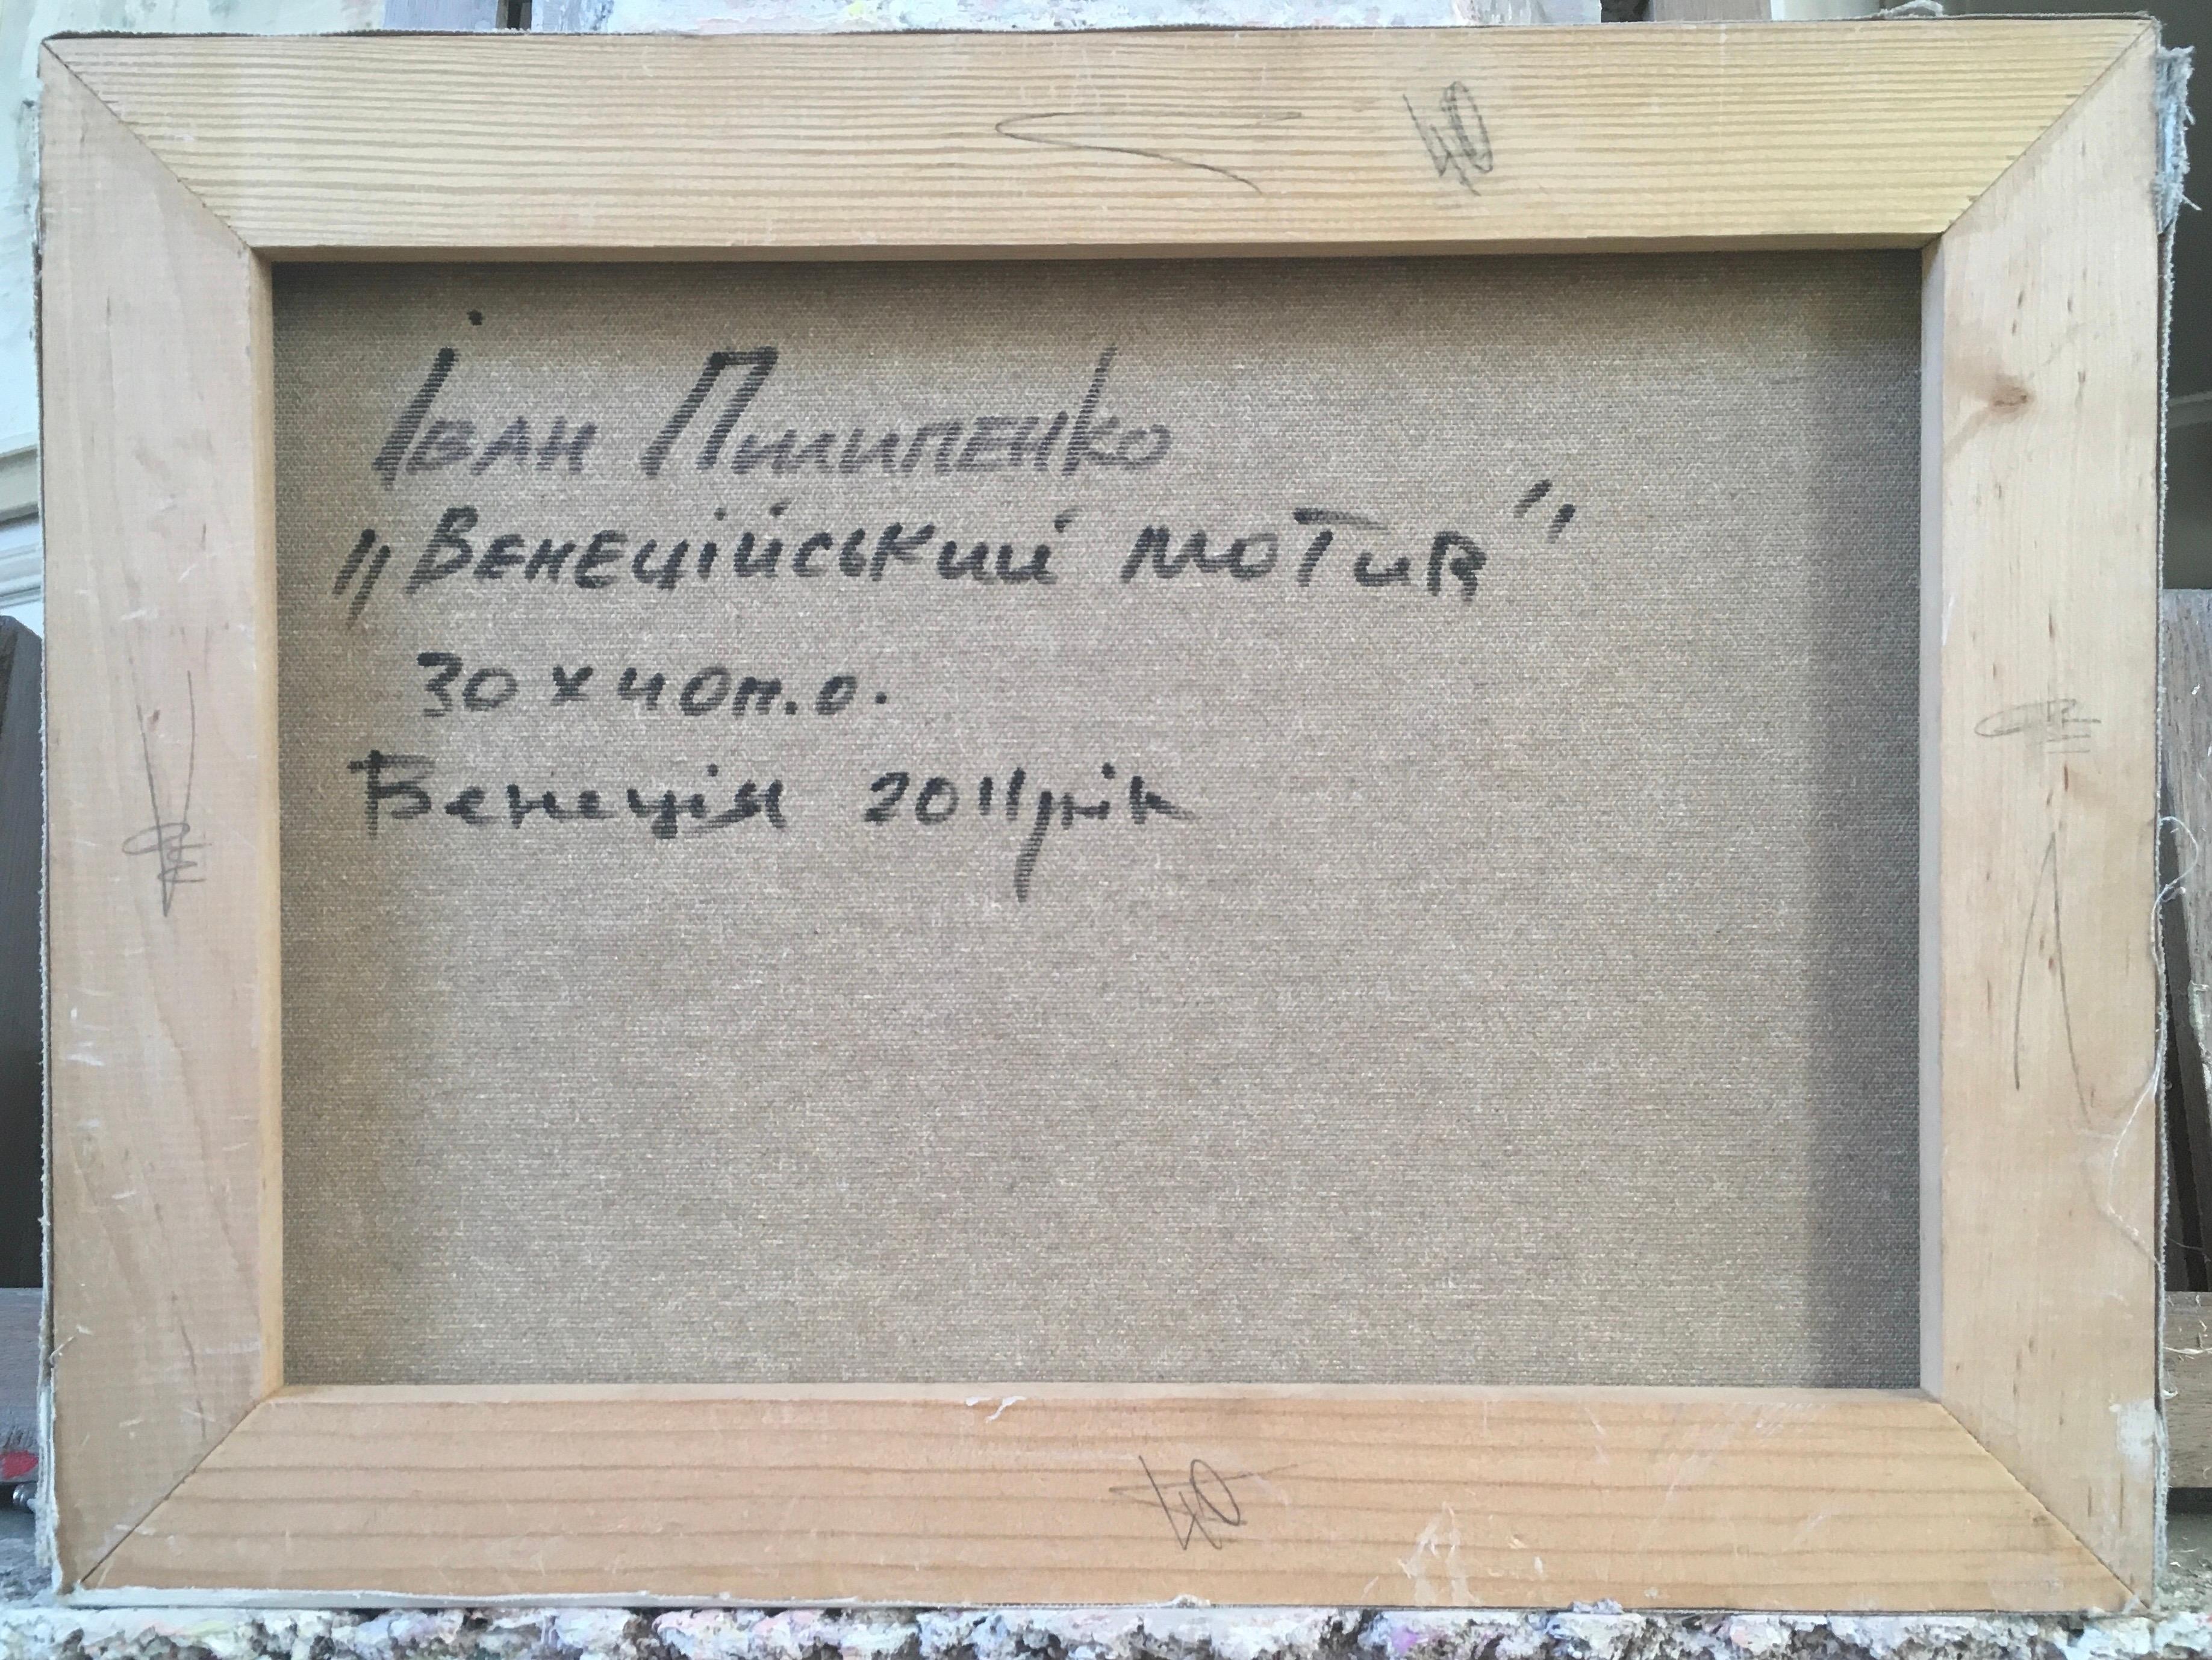 40
Іван Пилипенко
„Венеційський мотив"
30 х 40 п.о.
Венеція 2011 рік
40